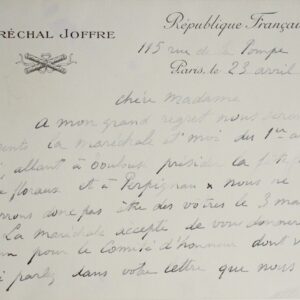 RÉCHAL JOFFRE
République Françai
115 rue de la Pompe
Paris, le 23 avril
Chère Madame
A mon grand regret nous serons
sents la maréchale et moi du 1er a
allant à Toulouse présider la
floraux et à Perpignan nous ne
rons donc pas être des vôtres le 3 ma
La maréchale accepte de vous donner
pour le Comité d'honneur dont v
parlez dans votre lettre que nous